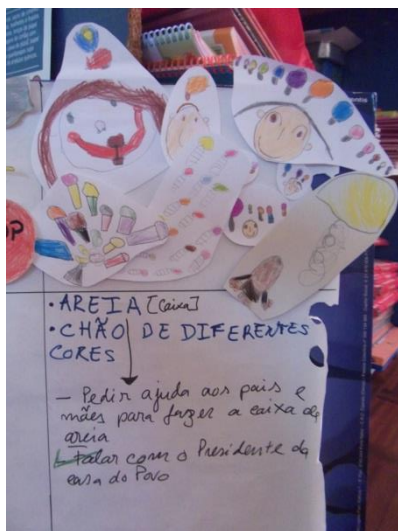 OP
• AREIA [Caixa]
• CHÃO DE DIFERENTES
CORES
– Pedir ajuda aos pais e
mães para fazer a caixa de
areia
– Falar com o Presidente da
casa do Povo